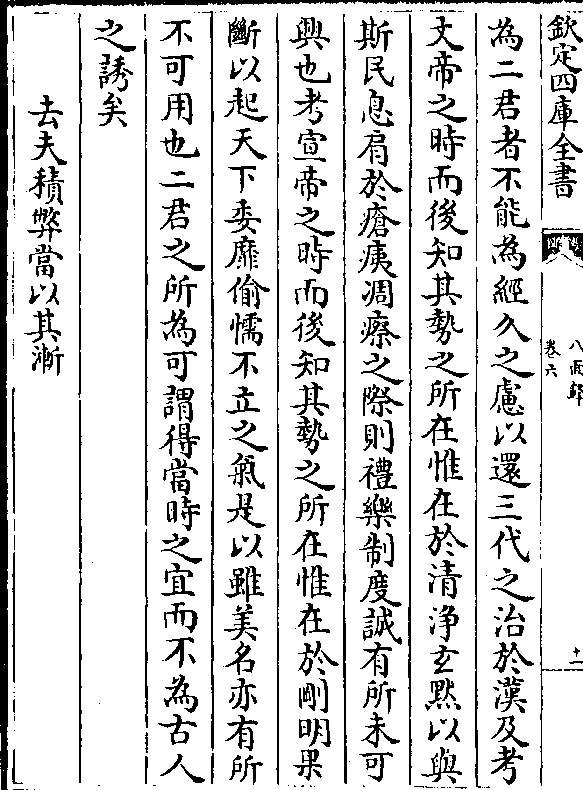 欽定四庫全書
八面鋒
卷六
十一
為二君者不能為經久之慮以還三代之治於漢及考
文帝之時而後知其勢之所在惟在於清浄玄黙以與
斯民息肩於瘡痍凋瘵之際則禮樂制度誠有所未可
興也考宣帝之時而後知其勢之所在惟在於剛明果
斷以起天下委靡偷懦不立之氣是以雖美名亦有所
不可用也二君之所為可謂得當時之宜而不為古人
之誘矣
去夫積弊當以其漸